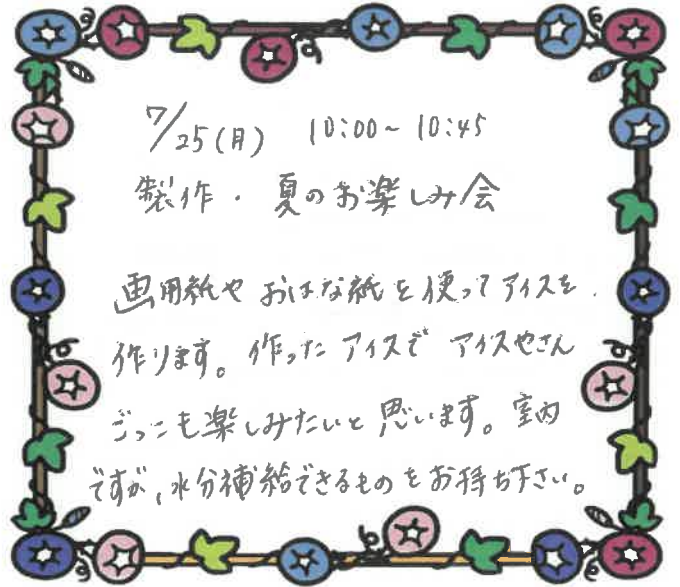 7/25(月) 10:00~10:45
製作・夏のお楽しみ会
画用紙や おはな紙を使ってアイスを
作ります。作ったアイスで アイスやさん
ごっこも楽しみたいと思います。室内
ですが、水分補給できるものをお持ち下さい。